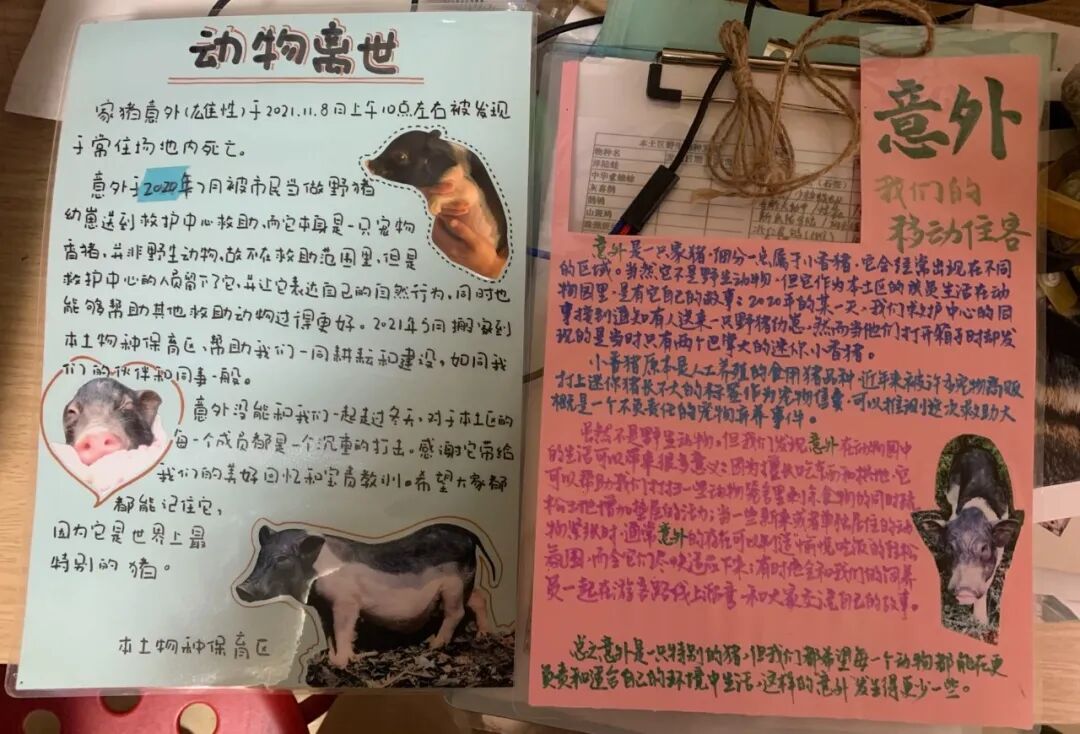 动物离世
家猪意外(雄性)于2021.11.8日上午10点左右被发现
于常住场地内死亡。
意外于2020年7月被市民当做野猪
幼崽送到救护中心救助,而它本身是一只宠物
香猪,并非野生动物,故不在救助范围里,但是
救护中心的人员留下了它,并让它表达自己的自然行为,同时也
能够帮助其他救助动物过得更好。2021年5月搬家到
本土物种保育区,帮助我们一同耕耘和建设,如同我
们的伙伴和同事一般。
意外没能和我们一起走过冬天,对于本土区的
每一个成员都是一个沉重的打击。感谢它带给
我们的美好回忆和宝贵教训。希望大家都
都能记住它,
因为它是世界上最
特别的猪。
本土物种保育区
意外
我们的
移动住客
物种名
中华蟾蜍
灰喜鹊
意外是一只家猪,细分一点属于小香猪,它会经常出现在不同
的区域。当然它不是野生动物,但它作为本土区的成员生活在动
物园里,是有它自己的故事:2020年的某一天,我们救护中心的同
事接到通知有人送来一只野猪幼崽,然而当他们打开箱子时却发
现的是当时只有两个巴掌大的迷你小香猪。
小香猪原本是人工养殖的食用猪品种,近年来被许多宠物商贩
打上迷你猪长不大的标签作为宠物售卖,可以推测小这次救助大
概是一个不负责任的宠物弃养事件。
虽然不是野生动物,但我们发现意外在动物园中
的生活可以带来很多意义:因为擅长吃东西和拱地,它
可以帮助我们打扫一些动物笼舍里剩余食物的同时疏
松土地增加垫层的活力;当一些新来或者单独居住的动
物紧张时,通常意外的存在可以制造愉悦吃饭的轻松
氛围,而令它们尽快适应下来;有时他会和我们的饲养
员一起在游客路线上溜弯,和大家交流自己的故事。
总之意外是一只特别的猪,但我们都希望每一个动物都能在更
负责和适合自己的环境中生活,这样的意外发生得更少一些。